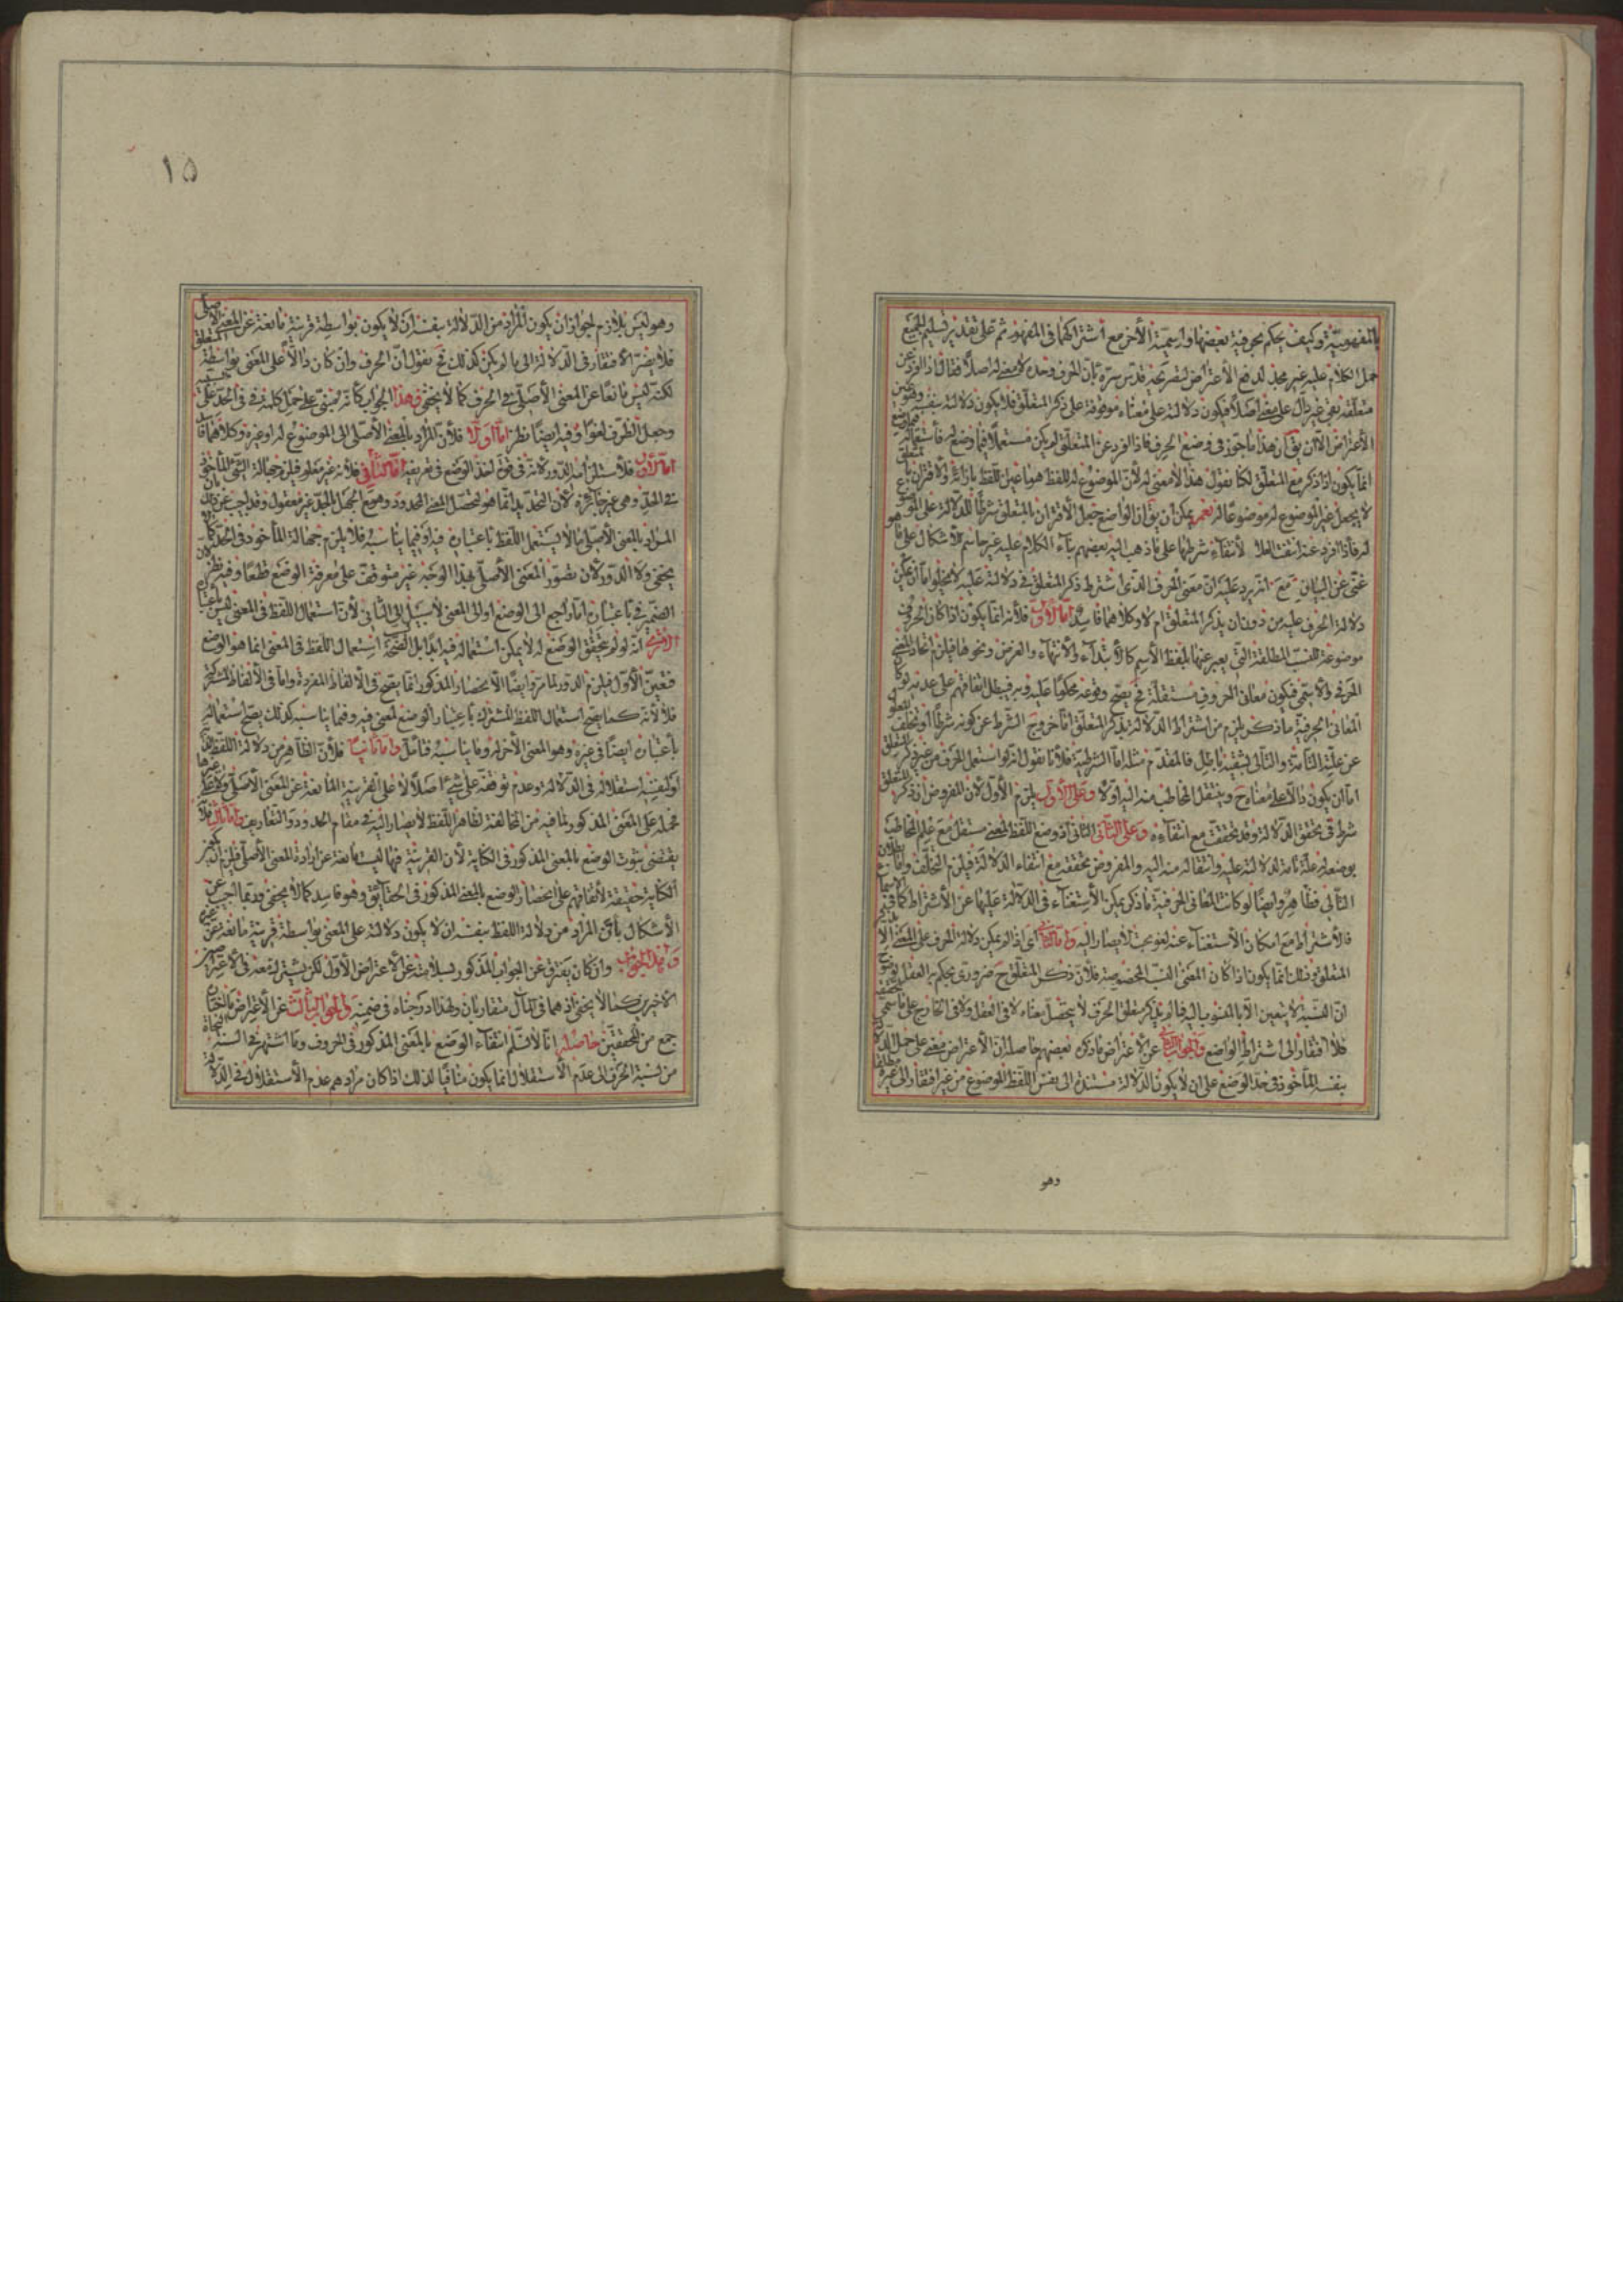 بالمفهومية وكيف يحكم بحرفية بعضها واسمية الآخر مع اشتراكهما في المفهوم ثم على تقدير تسليم الجميع
حمل الكلام عليه غير مجد لدفع الاعتراض لتصريحه قدس سره بأن الحرف وحده لا معنى له اصلا فقال اذا افرد عن
متعلقه بقى غير دال على معنى اصلا فيكون دلالته على معناه موقوفة على ذكر المتعلق فلا يكون دلالته بنفسه
الاعتراض الا ان يق ان هذا ما جوز في وضع الحرف فاذا افرد عن المتعلق لم يكن مستعملا فيما وضع له فاستعماله
انما يكون اذا ذكر مع المتعلق لكنا نقول هذا لا معنى له لأن الموضوع له للفظ هو ما عين اللفظ بازائه والاقتران
لا يجعل غير الموضوع له موضوعا له نعم يمكن ان يق ان الواضع جعل الاقتران بالمتعلق شرطا للدلالة على الموضوع
له فاذا افرد عنه انتفت الدلالة لانتفاء شرطها على ما ذهب اليه بعضهم الكلام عليه غير حاسم للاشكال على ما هو
غنى عن البيان مع انه يرد عليه ان معنى الحرف الذى اشترط ذكر المتعلق في دلالته عليه لا يخلو اما ان يمكن
دلالة الحرف عليه من دون ان يذكر المتعلق ام لا وكلاهما فاسد اما الأول فلأنه انما يكون اذا كان الحروف
موضوعة للنسب المطلقة التى يعبر عنها بلفظ الاسم كالابتداء والانتهاء والغرض ونحوها فيلزم اتحاد المعنى
الحرفى والاسمى فيكون معانى الحروف مستقلة فح يصح وقوعه محكوما عليه وبه فيبطل اتفاقهم على عدمه
المعانى الحرفية ما ذكر يلزم من اشتراط الدلالة بذكر المتعلق اما خروج الشرط عن كونه شرطا او تخلف المعلول
عن علته التامة والتالى بشقيه باطل فالمقدم مثله اما الشرطية فلانا نقول انه لو استعمل الحرف من غير ذكر المتعلق
اما ان يكون دالا على معناه ح وينتقل المخاطب منه اليه اولا وعلى الأول يلزم الأول لأن المفروض ان ذكر المتعلق
شرط في تحقق الدلالة وقد تحققت مع انتفاءه وعلى الثانى الثانى اذ وضع اللفظ لمعنى مستقل مع علم المخاطب
بوضعه له علة تامة لدلالته عليه وانتقاله منه اليه والمفروض تحققه مع انتفاء الدلالة فيلزم التخلف واما بطلان
التالى فظاهر وايضا لو كانت المعانى الحرفية ما ذكر يمكن الاستغناء في الدلالة عليها عن الاشتراط كما في
فالاشتراط مع امكان الاستغناء عنه لغو بحت لا يصار اليه واما الثانى اى اذا لم يمكن دلالة الحرف على المعنى الا بذكر
المتعلق وذلك انما يكون اذا كان المعنى النسب المخصوصة فلأن ذكر المتعلق ح ضرورى بحكم به العقل
ان النسبة لا يتعين الا بالمنسوب اليه فما لم يذكر متعلق الحرف لا يتحصل معناه لا في العقل ولا في الخارج على ما سيجئ
فلا افتقار الى اشتراط الواضع والجواب الثانى عن الاعتراض ما ذكره بعضهم حاصله ان الاعتراض مبنى على حمل الدلالة
بنفسه المأخوذ في حد الوضع على ان لا يكون الدلالة مستندة الى نفس اللفظ الموضوع من غير افتقار الى غيره
وهو
١٥
وهو ليس بلازم لجواز ان يكون المراد من الدلالة بنفسه ان لا يكون بواسطة قرينة مانعة عن المعنى الاصلى
فلا يضر الافتقار في الدلالة الى ما لم يكن كذلك فح نقول ان الحرف وان كان دالا على المعنى بواسطة المتعلق
لكنه ليس مانعا عن المعنى الأصلى في الحرف كما لا يخفى وهذا الجواب كانه مبتنى على حمل كلمة في في الحد على
وجعل الظرف لغوا وفيه ايضا نظر اما اولا فلأن المراد بالمعنى الأصلى الى الموضوع له او غيره وكلاهما فاسد
اما الأول فلاستلزامه الدور لانه في قوة اخذ الوضع في تعريفه اما الثانى فلأنه غير معلوم فيلزم جهالة الشئ المأخوذ
في الحد وهى غير جائزة لأن التحديد انما هو لتحصيل المعنى المحدود وهو مع الجهل بالحد غير معقول وقد يجيب عنه بان
المراد بالمعنى الأصلى ما لا يستعمل اللفظ باعتباره فيه او فيما يناسبه فلا يلزم جهالة المأخوذ في الحد كما لا
يخفى ولا الدور لأن تصور المعنى الأصلى بهذا الوجه غير متوقف على معرفة الوضع قطعا وفيه نظر لأن
الضمير في باعتباره اما راجع الى الوضع او الى المعنى لا سبيل الى الثانى لأن استعمال اللفظ في المعنى ليس باعتباره
الا ترى انه لو لم يتحقق الوضع له لا يمكن استعماله فيه ابدا بل لصحة استعمال اللفظ في المعنى انما هو الوضع
فتعين الأول فيلزم الدور لما مر وايضا الانحصار المذكور انما يصح في الألفاظ المفردة واما في الألفاظ المشتركة
فلا لأنه كما يصح استعمال اللفظ المشترك باعتبار الوضع لمعنى فيه وفيما يناسبه كذلك يصح استعماله
باعتباره ايضا في غيره وهو المعنى الآخر له وما يناسبه فتأمل واما ثانيا فلأن الظاهر من دلالة اللفظ
او كنفسه استقلاله في الدلالة وعدم توقفه على شئ اصلا لا على القرينة المانعة عن المعنى الأصلى
فحمله على المعنى المذكور لما فيه من المخالفة لظاهر اللفظ لا يصار اليه في مقام الحدود والتعاريف واما ثالثا فلأنه
يقتضى ثبوت الوضع بالمعنى المذكور في الكناية لأن القرينة فيها ليست مانعة عن ارادة المعنى الأصلى فيلزم ان يكون
الكناية حقيقة لاتفاقهم على انحصار الوضع بالمعنى المذكور في الحقايق وهو فاسد كما لا يخفى وربما اجيب عن
الأشكال بان المراد من دلالة اللفظ بنفسه ان لا يكون دلالته على المعنى بواسطة قرينة مانعة عن غيره
وهذا الجواب وان كان يفترق عن الجواب المذكور بسلامته عن الاعتراض الأول لكن يشترك معه في الاعتراضين
الأخيرين كما لا يخفى اذ هما في المآل متقاربان ولهذا ادرجناه في ضمنه والجواب الثالث عن الاعتراض
جمع من المحققين حاصله انا لا نسلم انتفاء الوضع بالمعنى المذكور في الحروف وما اشتهر في السنة النحاة
من نسبة الحرف الى عدم الاستقلال انما يكون منافيا لذلك اذا كان مرادهم عدم الاستقلال في الدلالة